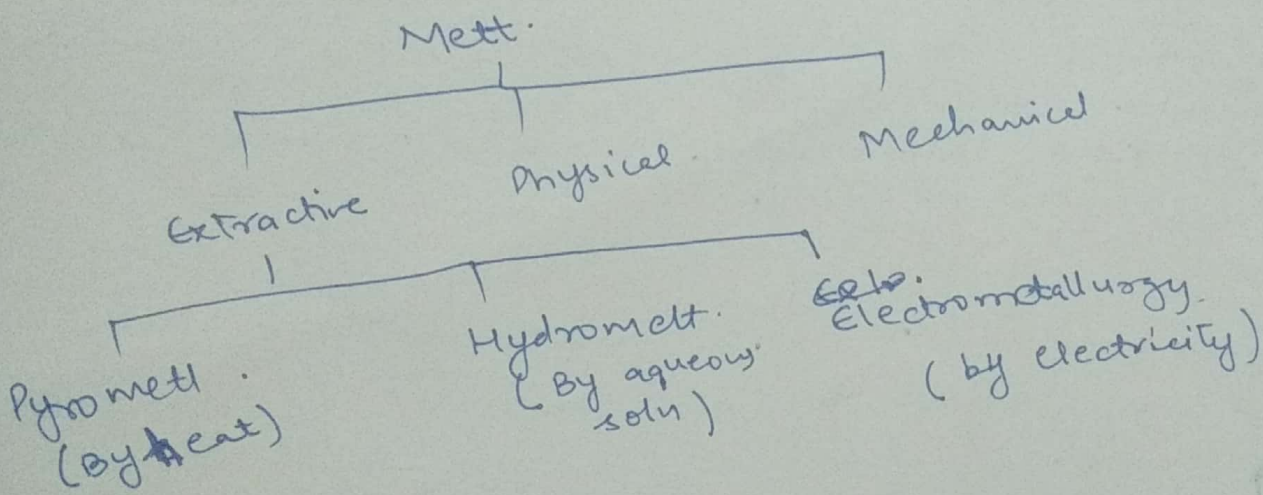 Mett.
Extractive
Physical
Mechanical
Pyrometl.
(By heat)
Hydromelt.
(By aqueous
soln)
Electrometallurgy.
(by electricity)